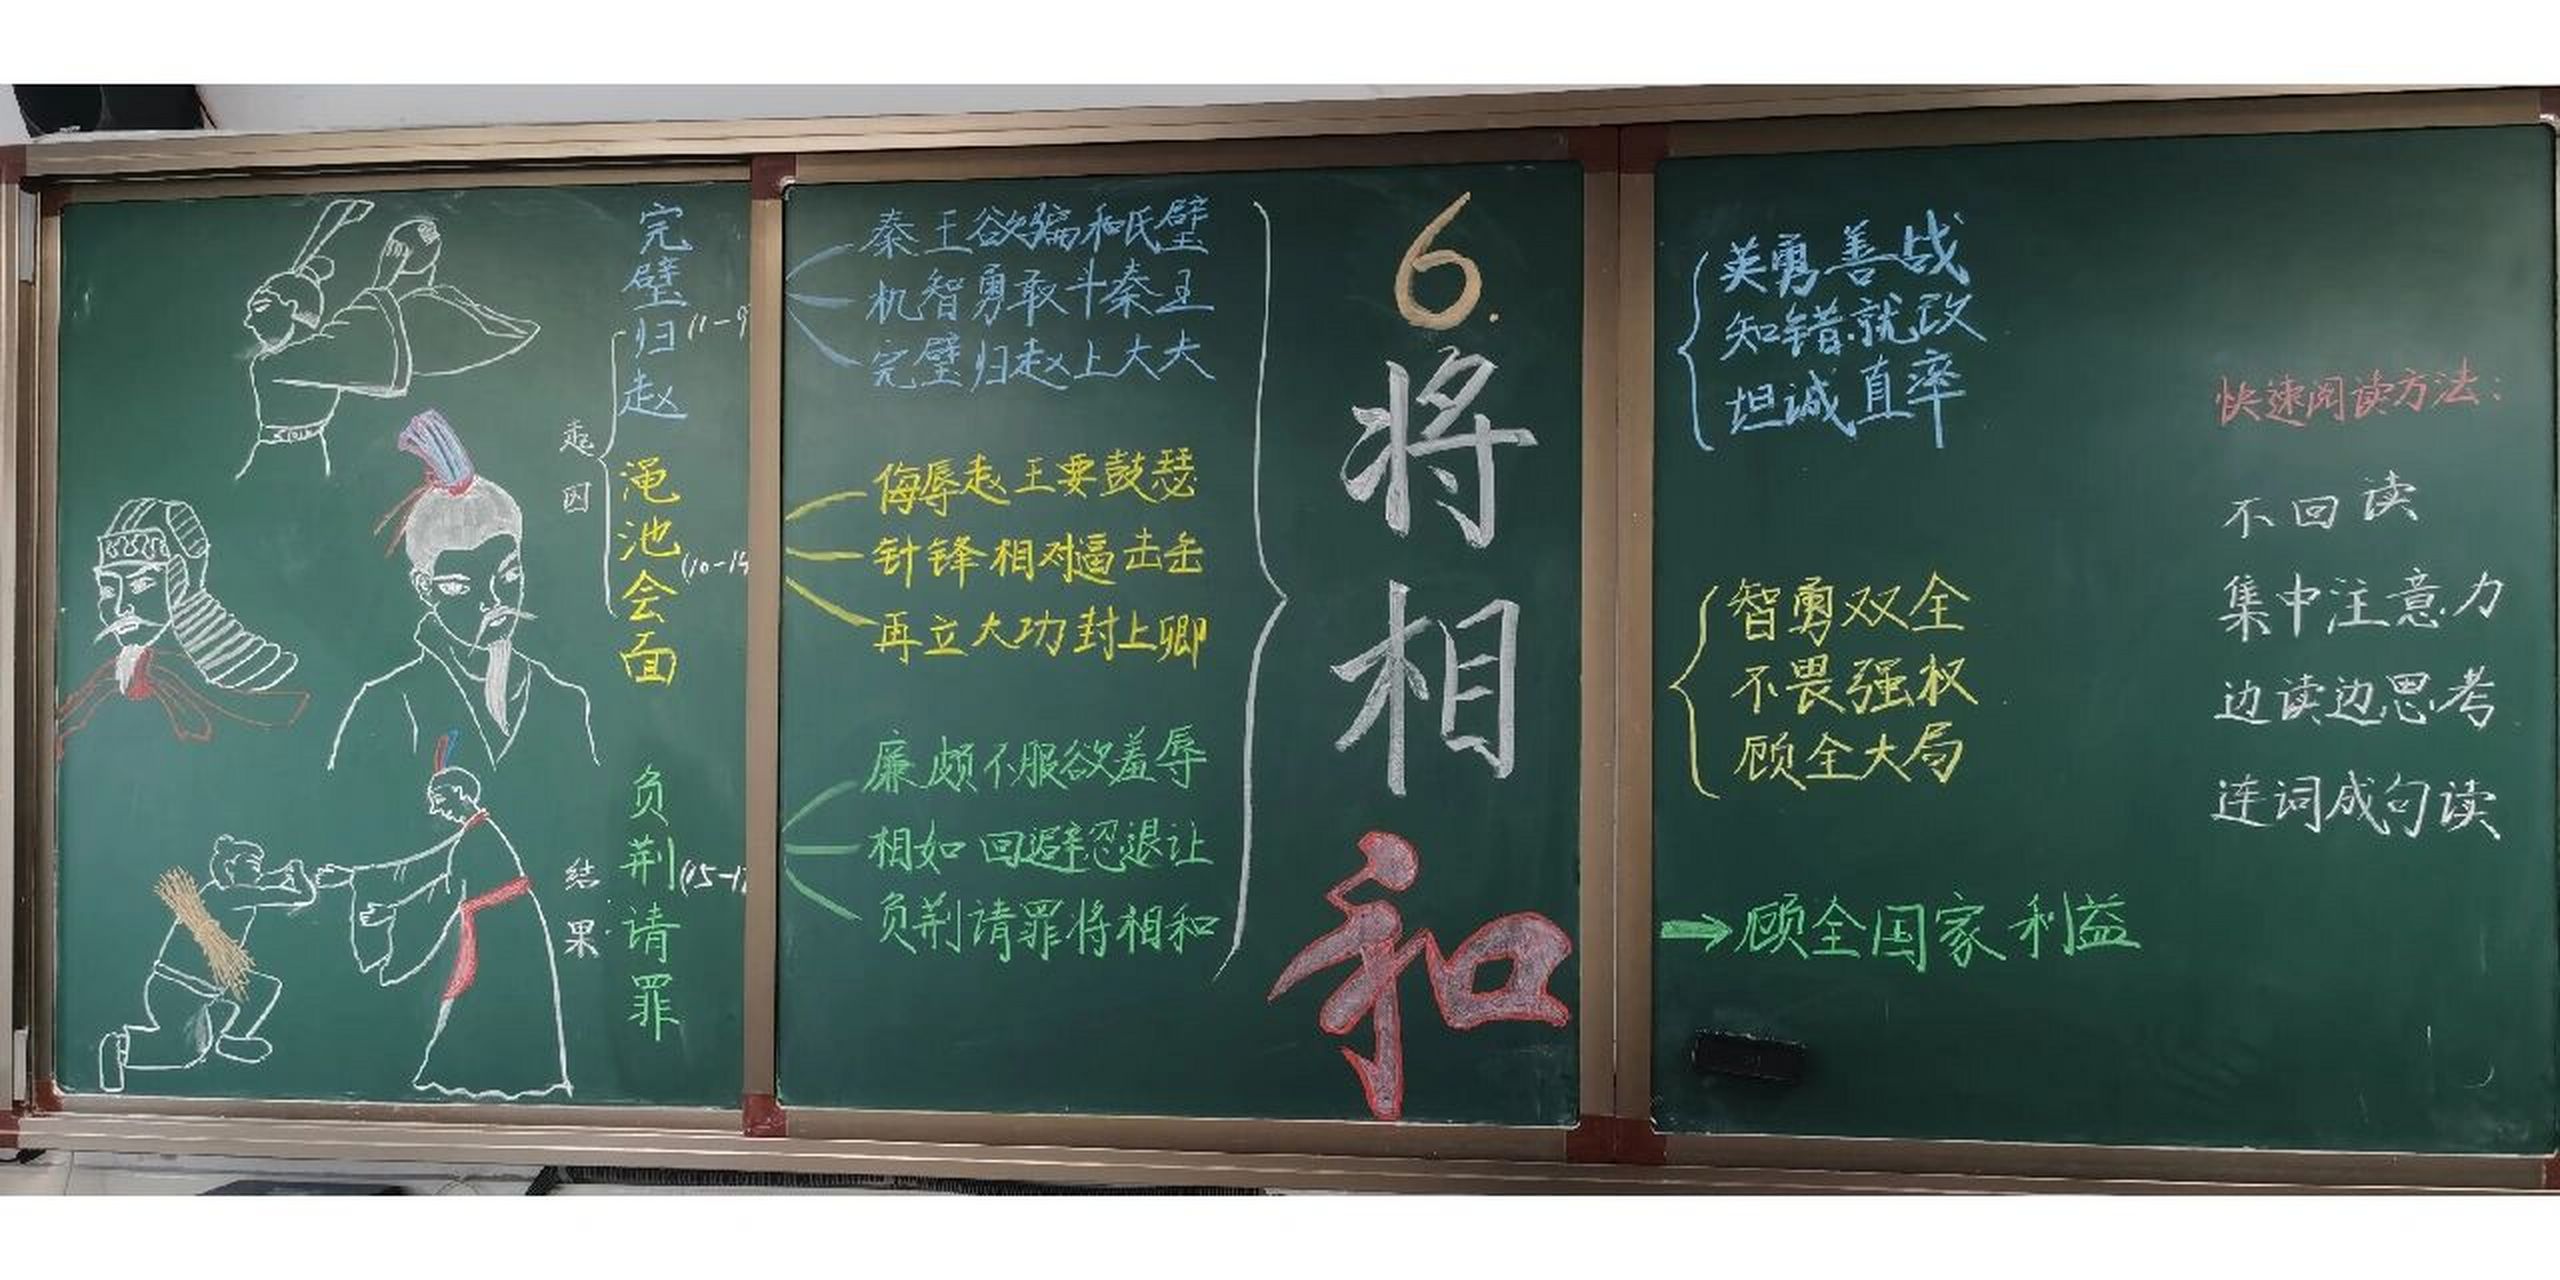 完璧归赵
(1-9
起因
渑池会面
(10-14
负荆请罪
(15-1
结果
秦王欲骗和氏璧
机智勇敢斗秦王
完璧归赵上大夫
侮辱赵王要鼓瑟
针锋相对逼击缶
再立大功封上卿
廉颇不服欲羞辱
相如回避忍退让
负荆请罪将相和
6.
将相和
英勇善战
知错就改
坦诚直率
智勇双全
不畏强权
顾全大局
→顾全国家利益
快速阅读方法：
不回读
集中注意力
边读边思考
连词成句读